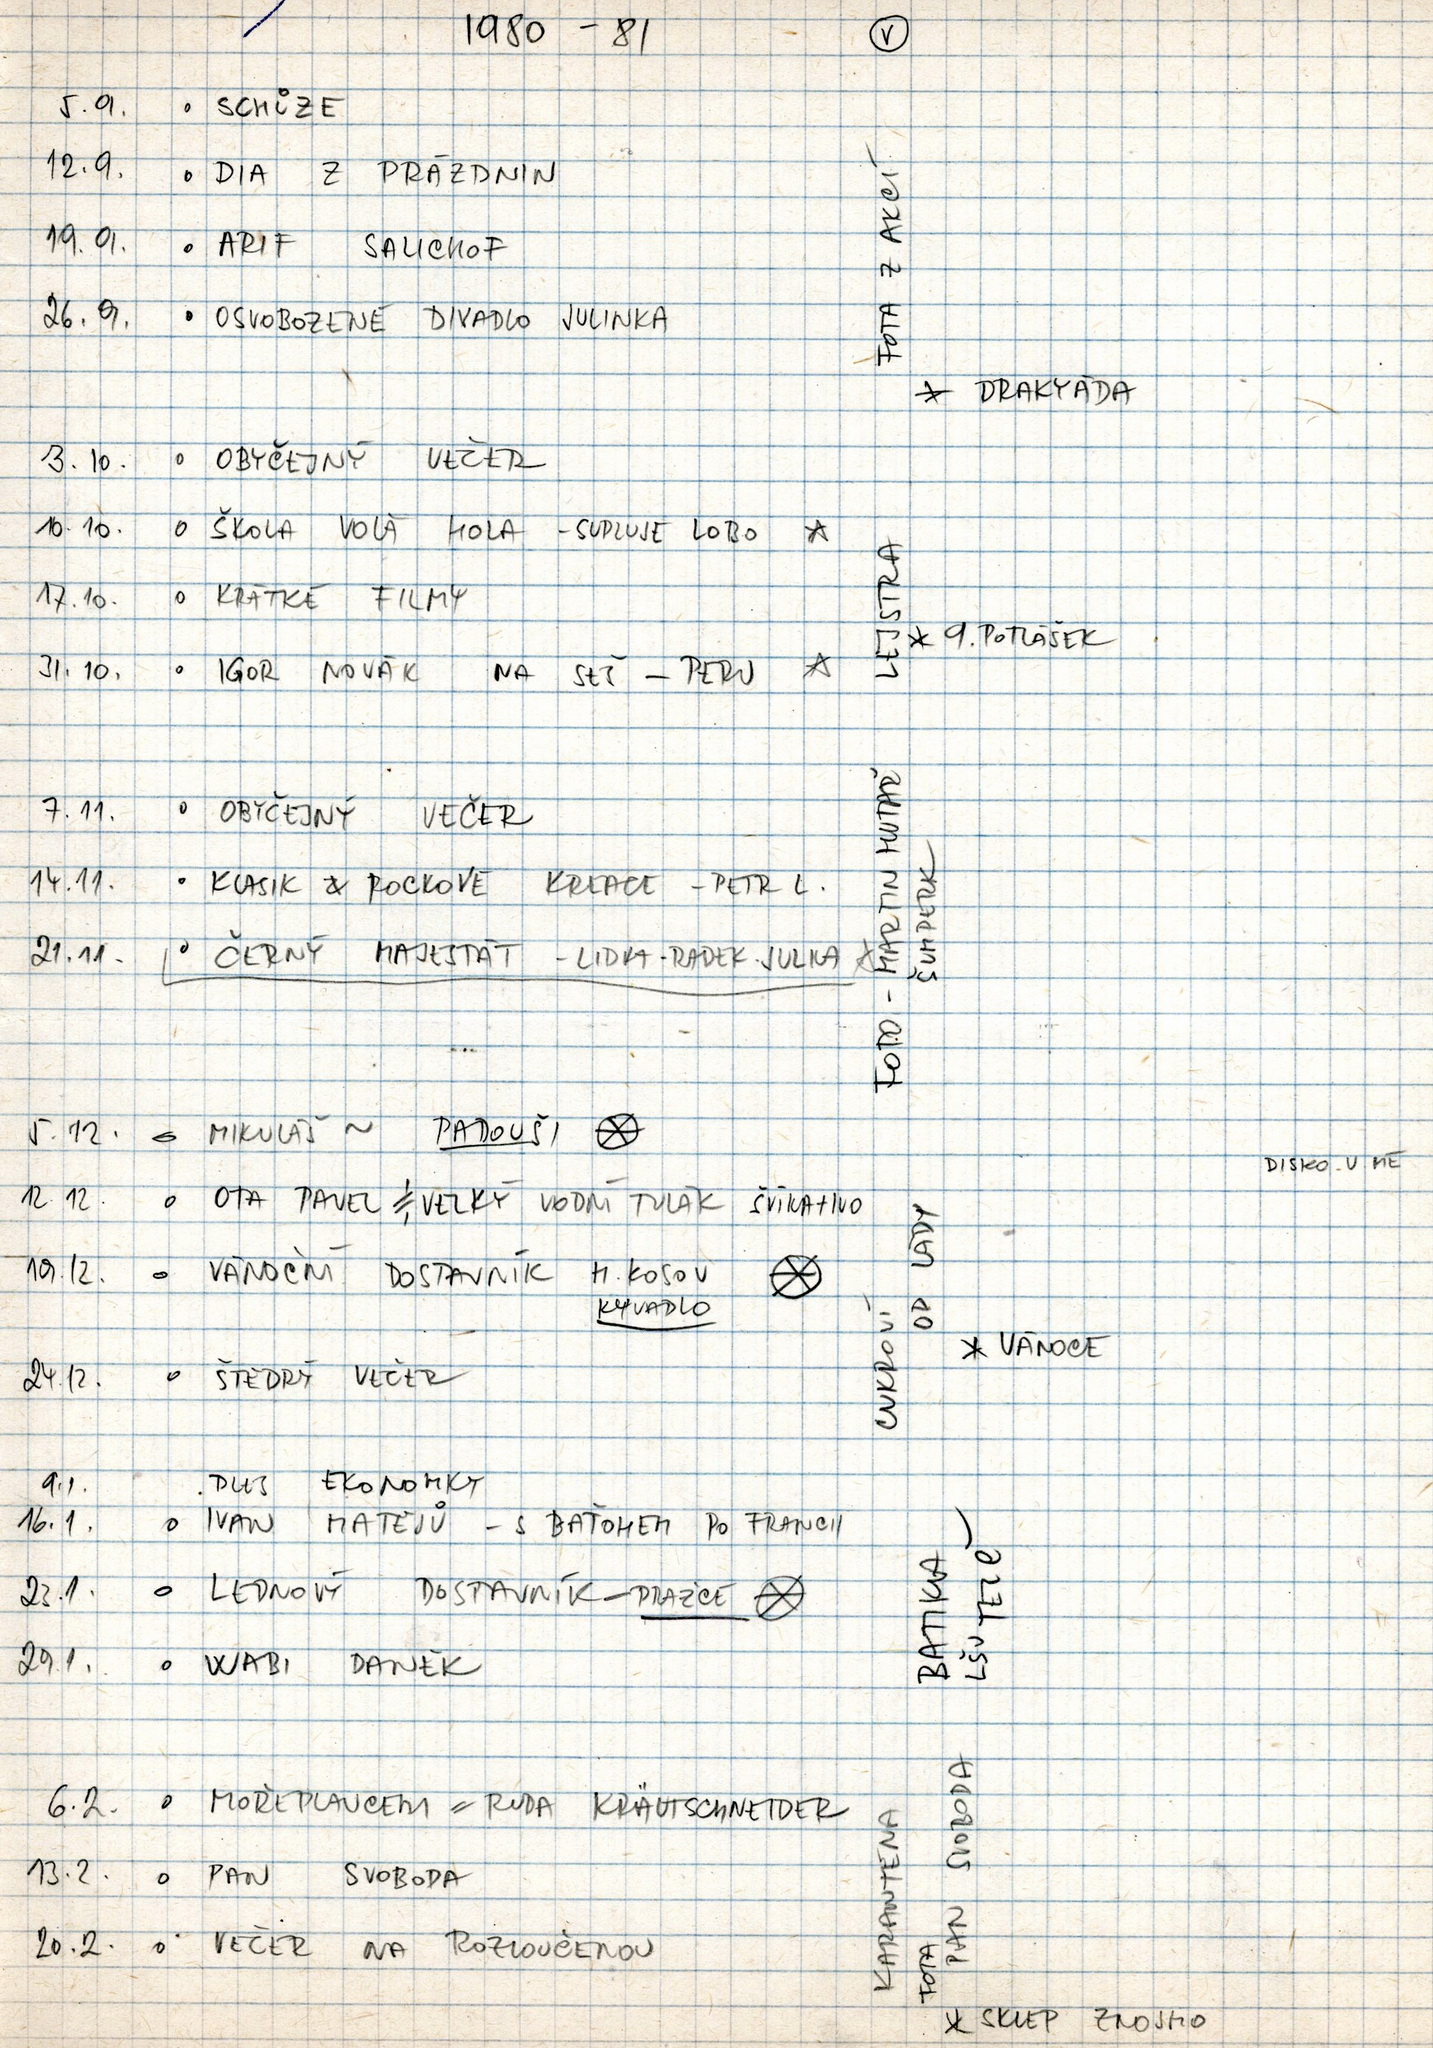 1980 - 81
V
5.9. • SCHŮZE
12.9. • DIA Z PRÁZDNIN
19.9. • ARIF SALICHOF
26.9. • OSVOBOZENÉ DIVADLO JULINKA
FOTA Z AKCÍ
* DRAKYÁDA
3.10. • OBYČEJNÝ VEČER
10.10. • ŠKOLA VOLÁ HOLA - SUPLUJE LOBO ☆
17.10. • KRÁTKÉ FILMY
LEJSTRA
* 9. POTLAŠEK
31.10. • IGOR NOVÁK NA SEŠ - PERU ☆
7.11. • OBYČEJNÝ VEČER
14.11. • KLASIK & ROCKOVÉ KREACE - PETR L.
21.11. • ČERNÝ MAJESTÁT - LIDKA - RADEK - JULKA ☆
FOTO - MARTIN
ŠUMPERK
5.12. • MIKULÁŠ ~ PADOUŠI ⊗
DISKO U MĚ
12.12. • OTA PAVEL = VELKÝ VODNÍ TULÁK
19.12. • VÁNOČNÍ DOSTAVNÍK H. KOSOV ⊗
KYVADLO
CUKROVÍ
OD LÁDY
* VÁNOCE
24.12. • ŠTĚDRÝ VEČER
9.1. . PLES EKONOMKY
16.1. • IVAN MATĚJŮ - S BAŤOHEM PO FRANCII
23.1. • LEDNOVÝ DOSTAVNÍK - PRAŽCE ⊗
29.1. • WABI DANĚK
BATIKA
LŠU TELČ
6.2. • MOŘEPLAVCEM = RUDA KRÄUTSCHNEIDER
13.2. • PAN SVOBODA
20.2. • VEČER NA ROZLOUČENOU
KARANTÉNA
FOTA PAN SVOBODA
* SKLEP ZNOJMO